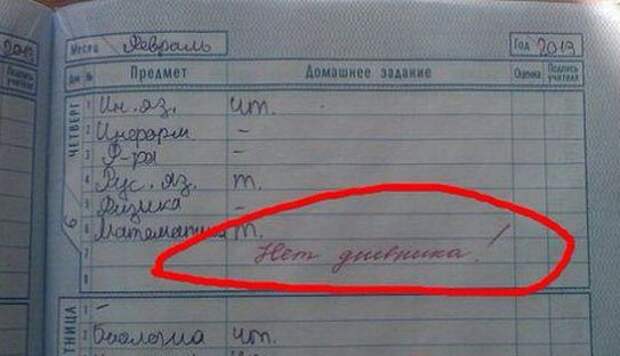 2013
Месяц Февраль Год 2013
Дни № Предмет Домашнее задание Оценка Подпись учителя
ЧЕТВЕРГ
1 Ин. яз. чт.
2 Информ -
3 Ф-ра -
4 Рус. яз. т.
5 Физика -
6 Математика т.
7 Нет дневника!
8
1 -
2 биология чт.